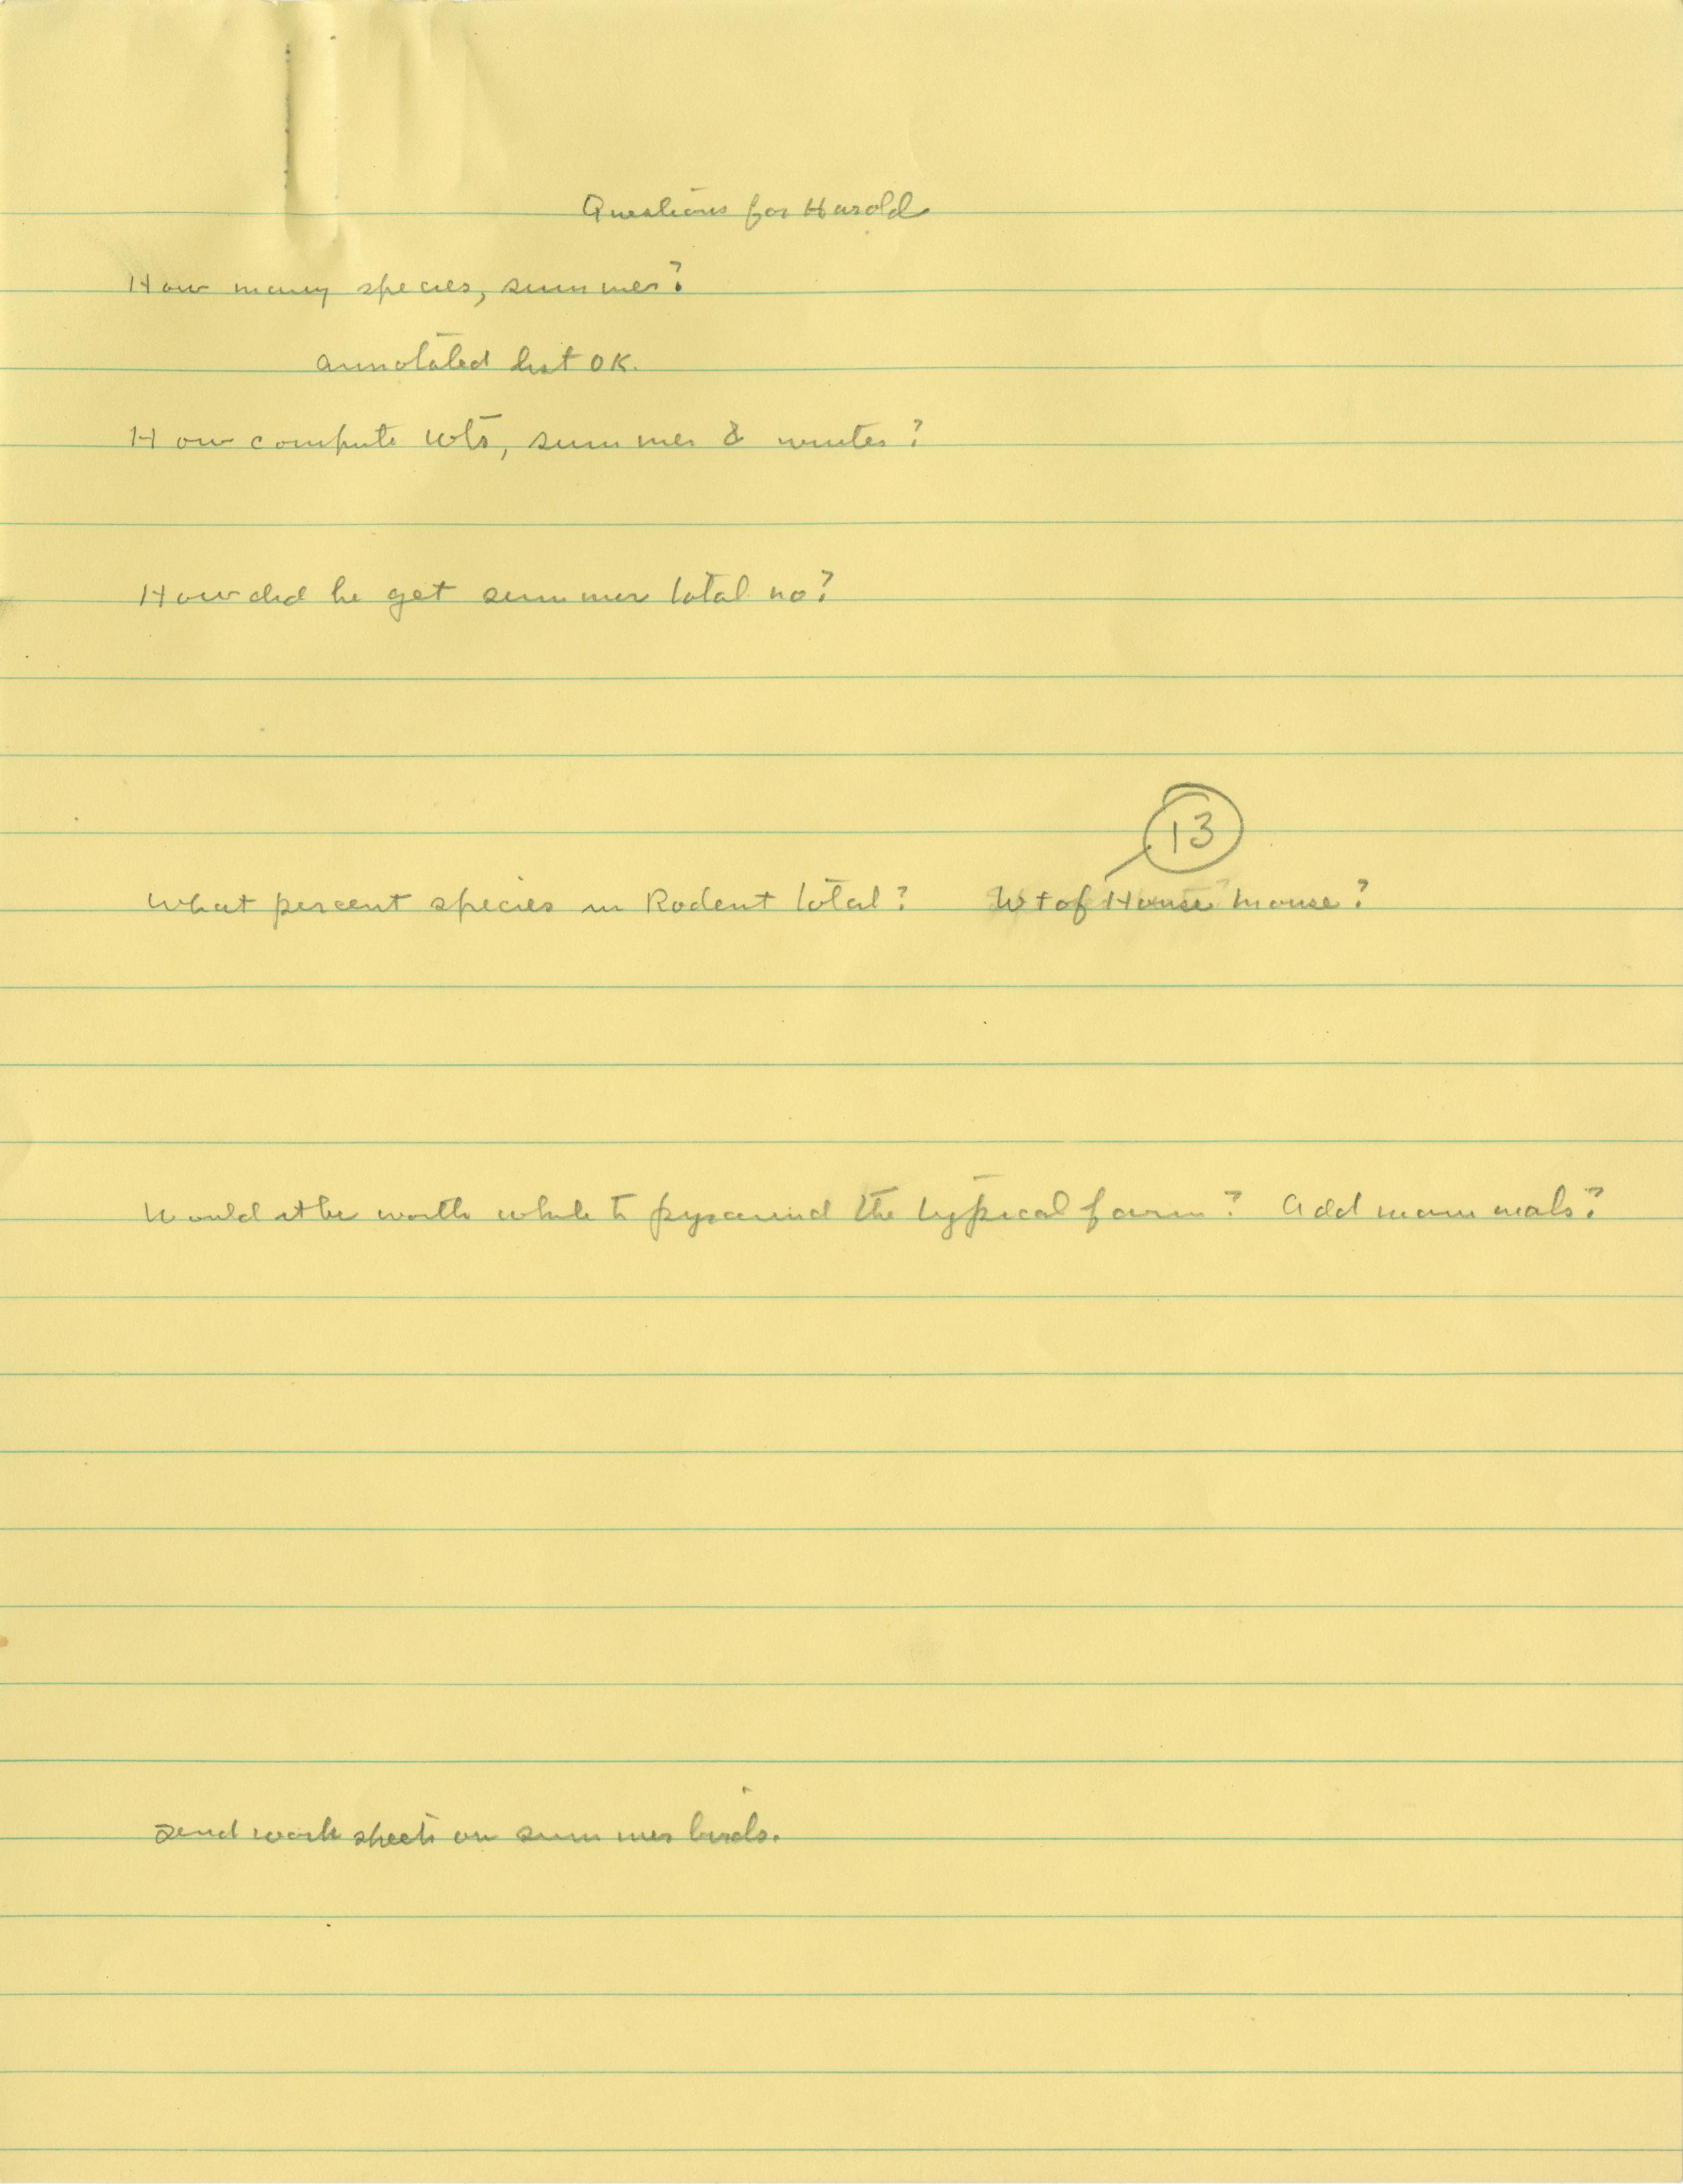 Questions for Harold
How many species, summer?
annotated list OK.
How compute wts, summer & winter?
How did he get summer total no?
13
What percent species in Rodent total? Wt of House mouse?
Would it be worth while to pyramid the typical farm? Add mammals?
Send work sheets on summer birds.